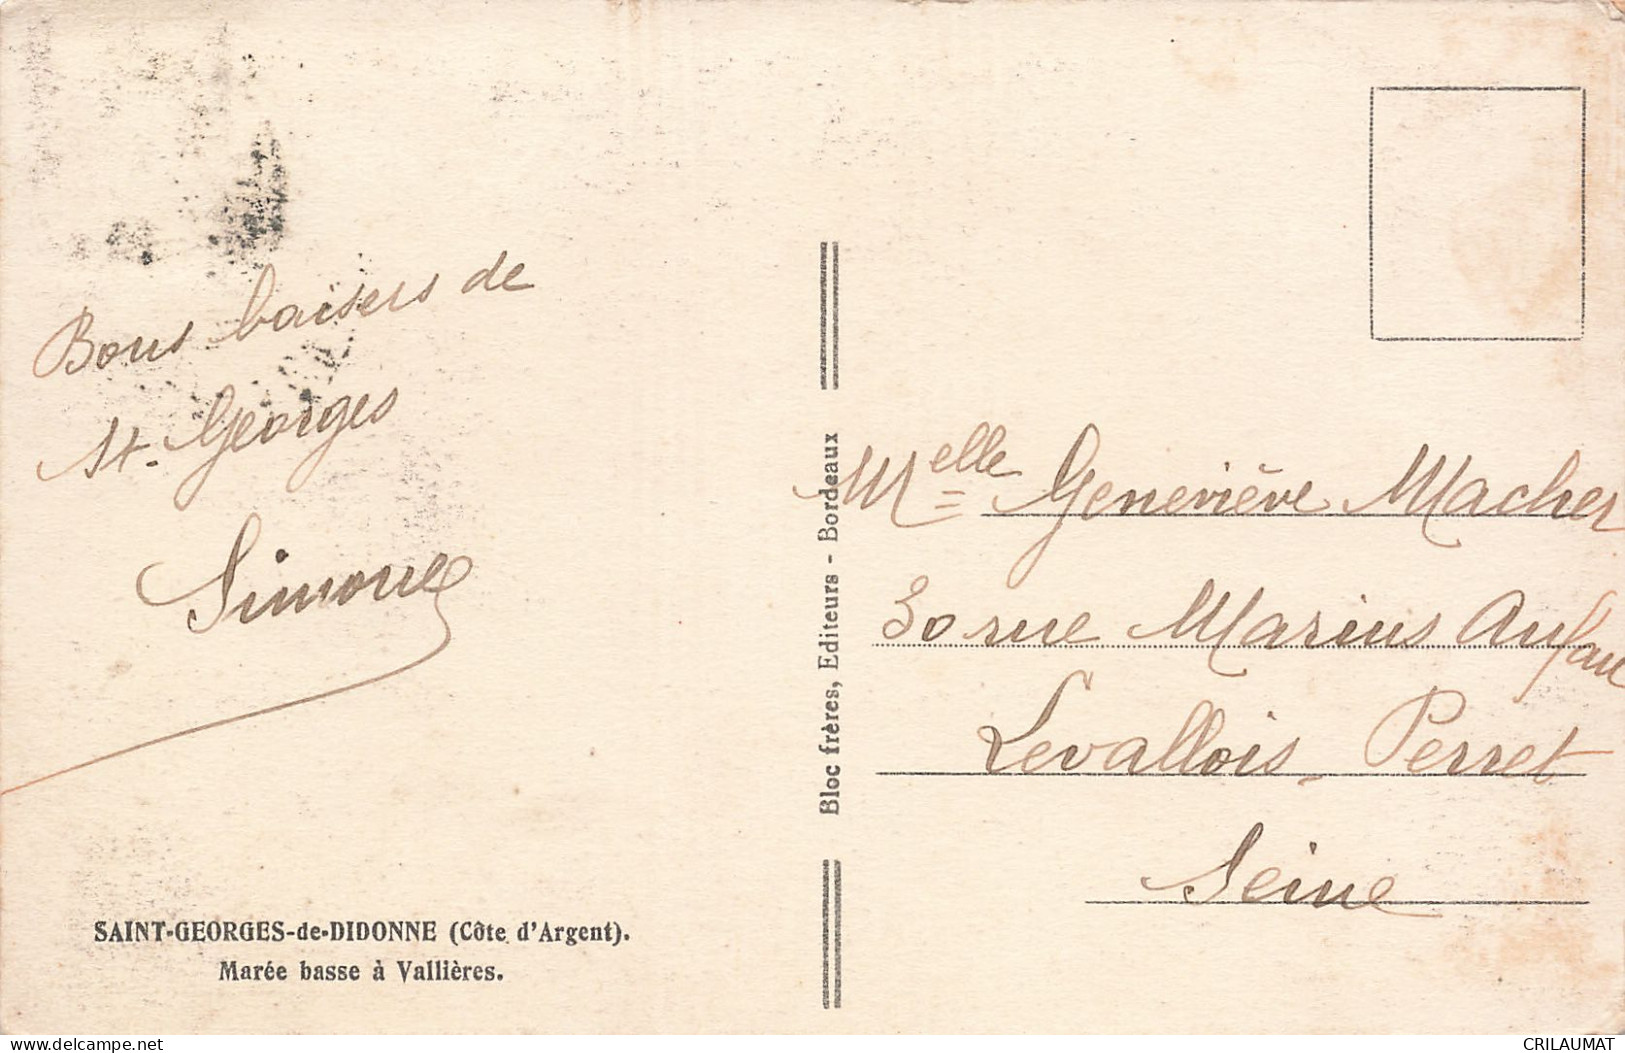 Bons baisers de
St. Georges
Simone
SAINT-GEORGES-de-DIDONNE (Côte d'Argent).
Marée basse à Vallières.
Bloc frères, Editeurs - Bordeaux
Melle Geneviève Macher
30 rue Marius Aufan
Levallois-Perret
Seine
delcampe.net
CRILAUMAT